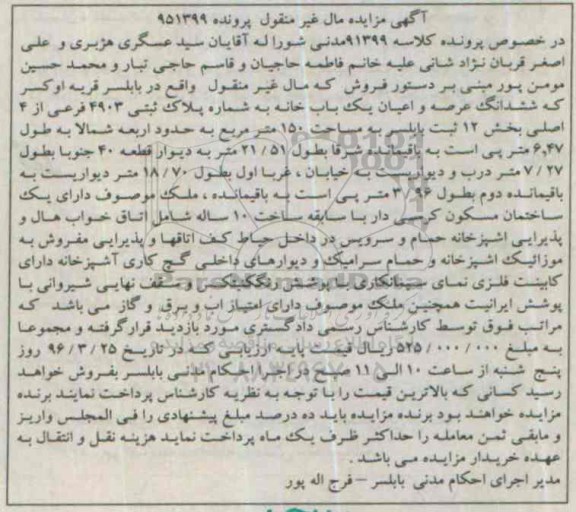 آگهی مزایده مال غیر منقول پرونده ۹۵۱۳۹۹
در خصوص پرونده کلاسه ۹۱۳۹۹مدنی شورا له آقایان سید عسگری هژبری و علی
اصغر قربان نژاد شانی علیه خانم فاطمه حاجیان و قاسم حاجی تبار و محمد حسین
مومن پور مبنی بر دستور فروش که مال غیر منقول واقع در بابلسر قریه اوکسر
که ششدانگ عرصه و اعیان یک باب خانه به شماره پلاک ثبتی ۴۹۰۳ فرعی از ۴
اصلی بخش ۱۲ ثبت بابلسر به مساحت ۱۵۰ متر مربع به حدود اربعه شمالا به طول
۶,۴۷ متر پی است به باقیمانده شرقا بطول ۲۱/۵۱ متر به دیوار قطعه ۴۰ جنوبا بطول
۷/۲۷ متر درب و دیواریست به خیابان ، غربا اول بطول ۱۸/۷۰ متر دیواریست به
باقیمانده دوم بطول ۳/۹۶ متر پی است به باقیمانده ، ملک موصوف دارای یک
ساختمان مسکون کرسی دار با سابقه ساخت ۱۰ ساله شامل اتاق خواب هال و
پذیرایی اشپزخانه حمام و سرویس در داخل حیاط کف اتاقها و پذیرایی مفروش به
موزائیک اشپزخانه و حمام سرامیک و دیوارهای داخلی گچ کاری آشپزخانه دارای
کابینت فلزی نمای سیمانکاری با پوشش رنگ و سقف نهایی شیروانی با
پوشش ایرانیت همچنین ملک موصوف دارای امتیاز اب و برق و گاز می باشد که
مراتب فوق توسط کارشناس رسمی دادگستری مورد بازدید قرارگرفته و مجموعا
به مبلغ ۵۲۵/۰۰۰/۰۰۰ ریال قیمت پایه ارزیابی که در تاریخ ۹۶/۳/۲۵ روز
پنج شنبه از ساعت ۱۰ الی ۱۱ صبح در اجرا احکام مدنی بابلسر بفروش خواهد
رسید کسانی که بالاترین قیمت را با توجه به نظریه کارشناس پرداخت نمایند برنده
مزایده خواهند بود برنده مزایده باید ده درصد مبلغ پیشنهادی را فی المجلس واریز
و مابقی ثمن معامله را حداکثر ظرف یک ماه پرداخت نماید هزینه نقل و انتقال به
عهده خریدار مزایده می باشد .
مدیر اجرای احکام مدنی بابلسر – فرج اله پور